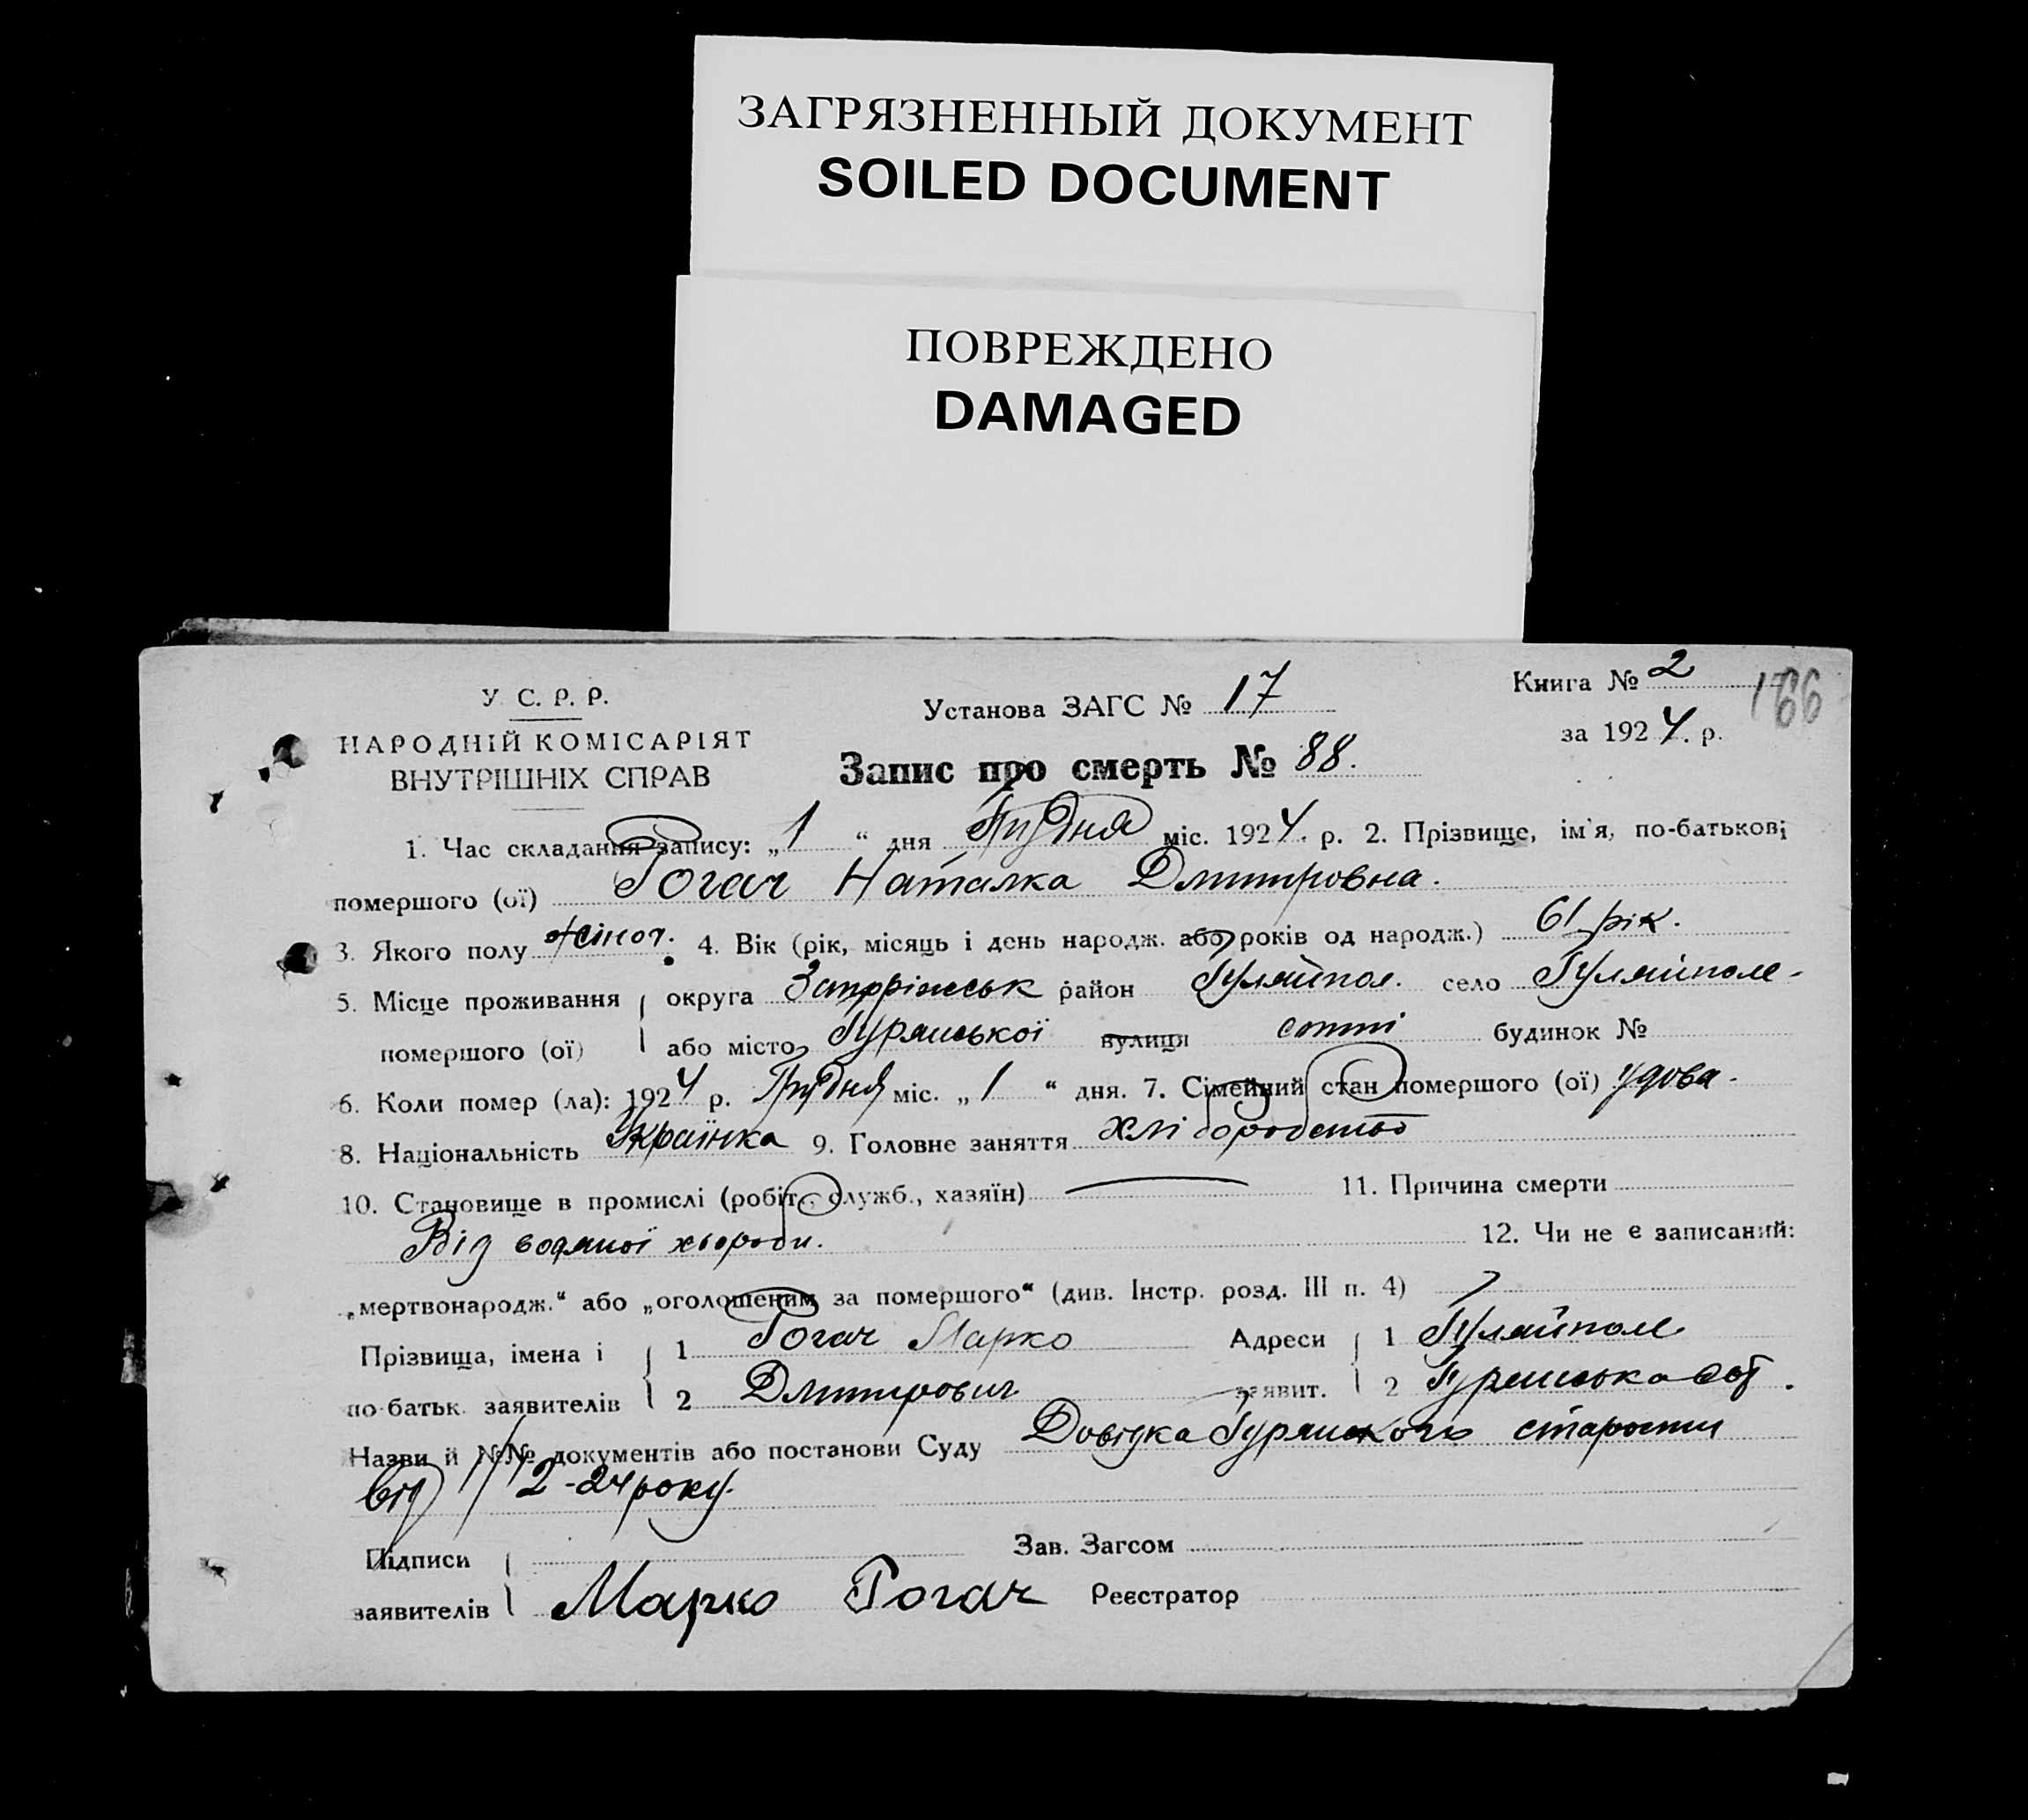 ЗАГРЯЗНЕННЫЙ ДОКУМЕНТ
SOILED DOCUMENT
ПОВРЕЖДЕНО
DAMAGED
У С. Р. Р.
НАРОДНІЙ КОМІСАРІЯТ
ВНУТРІШНІХ СПРАВ
Установа ЗАГС № 17
Книга № 2
166
за 1924. р.
Запис про смерть № 88.
1. Час складання запису: „1“ дня Грудня міс. 1924. р. 2. Прізвище, ім'я, по-батькові
помершого (ої) Рогач Наталка Дмитровна.
3. Якого полу жіноч. 4. Вік (рік, місяць і день народж. або років од народж.) 61 рік.
5. Місце проживання округа Запоріжськ район Гуляйпол. село Гуляйполе
помершого (ої) або місто Гурянської вулиця сотні будинок №
6. Коли помер (ла): 1924 р. Грудня міс. „1“ дня. 7. Сімейний стан помершого (ої) удова.
8. Національність Українка 9. Головне заняття хліборобство
10. Становище в промислі (робіт., служб., хазяїн) 11. Причина смерти
Від водяної хвороби. 12. Чи не є записаний:
„мертвонародж.“ або „оголошеним за помершого“ (див. Інстр. розд. III п. 4)
Прізвища, імена і 1 Рогач Марко Адреси 1 Гуляйполе
по-батьк. заявителів 2 Дмитрович заявит. 2 Гурянська сот.
Назви й №№ документів або постанови Суду Довідка Гурянского старости
від 1/12-24 року.
Підписи Зав. Загсом
заявителів Марко Рогач Реєстратор